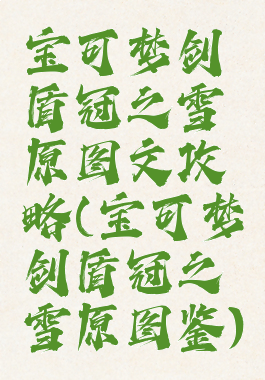 宝可梦剑
盾冠之雪
原图文攻
略(宝可梦
剑盾冠之
雪原图鉴)